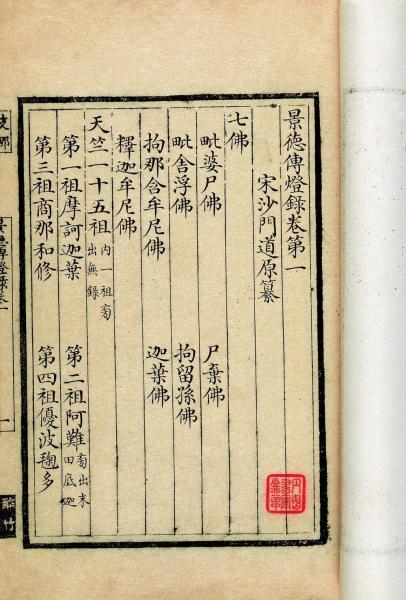 景德傳燈錄卷第一
宋沙門道原纂
七佛
毗婆尸佛 尸棄佛
毗舍浮佛 拘留孫佛
拘那含牟尼佛 迦葉佛
釋迦牟尼佛
天竺一十五祖 內一祖旁出無錄
第一祖摩訶迦葉 第二祖阿難 旁出末田底迦
第三祖商那和修 第四祖優波毱多